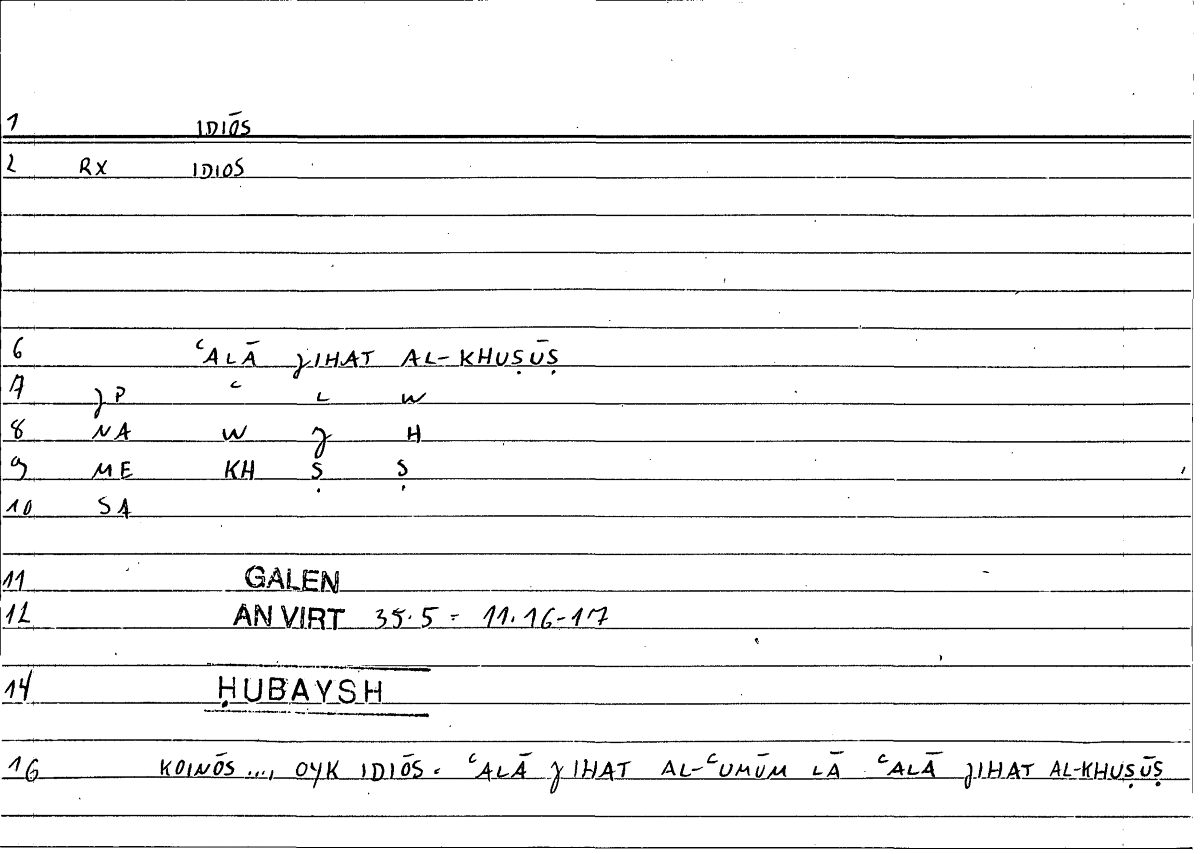 1 IDIŌS
2 RX IDIOS
6 ʿALĀ JIHAT AL-KHUṢŪṢ
7 JP ʿ L W
8 NA W J H
9 ME KH Ṣ Ṣ
10 SA
11 GALEN
12 AN VIRT 35.5 = 11.16-17
14 ḤUBAYSH
16 KOINŌS ..., OYK IDIŌS = ʿALĀ JIHAT AL-ʿUMŪM LĀ ʿALĀ JIHAT AL-KHUṢŪṢ